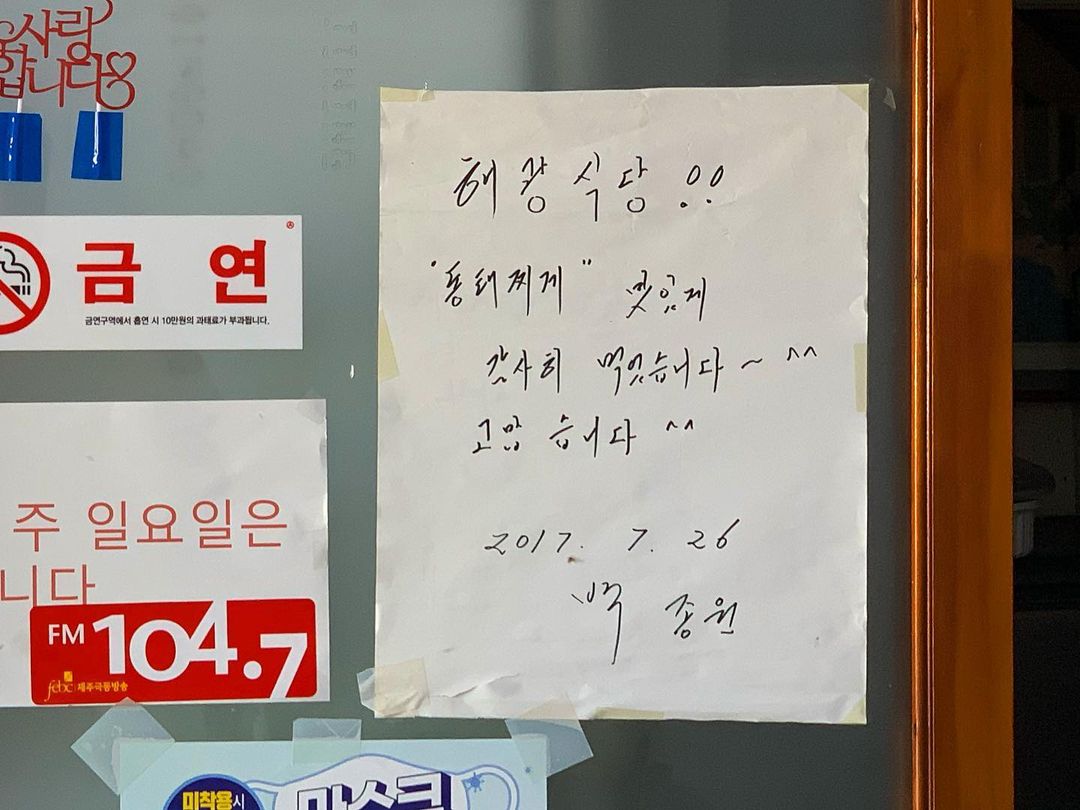 사랑
합니다
금 연
금연구역에서 흡연 시 10만원의 과태료가 부과됩니다.
주 일요일은
니다
FM 104.7
febc 제주극동방송
해광식당!!
"동태찌게" 맛있게
감사히 먹었습니다~ ^^
고맙습니다 ^^
2017. 7. 26
백종원
미착용시
마스크